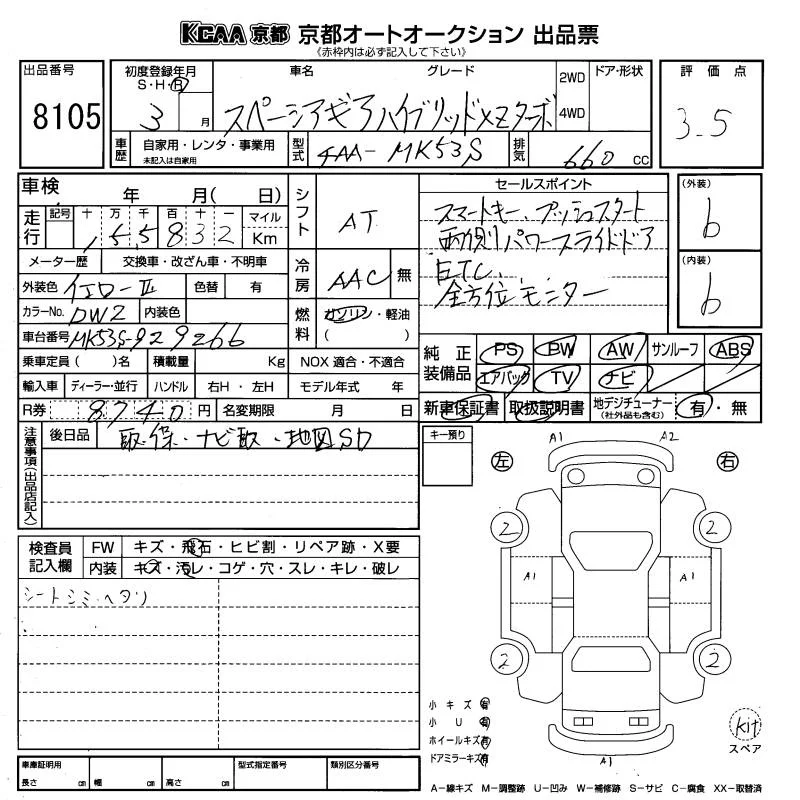 KCAA 京都 京都オートオークション 出品票
《赤枠内は必ず記入して下さい》
出品番号 初度登録年月 車名 グレード 2WD ドア・形状 評価点
S・H・R
8105 3 月 スペーシアギア ハイブリッドXZターボ 4WD 3.5
車歴 自家用・レンタ・事業用 型式 4AA-MK53S 排気 660 CC
未記入は自家用
車検 年 月( 日) シフト AT セールスポイント (外装)
走行 記号 十 万 千 百 十 一 マイル スマートキー、プッシュスタート b
1 5 5 8 3 2 Km 両側パワースライドドア
メーター歴 交換車・改ざん車・不明車 冷房 AAC 無 ETC (内装)
外装色 イエローⅢ 色替 有 全方位モニター b
カラーNo. DW2 内装色 燃料 ガソリン・軽油
車台番号 MK53S-929266 ( )
乗車定員( )名 積載量 Kg NOX 適合・不適合 純正装備品 PS BW AW サンルーフ ABS
輸入車 ディーラー・並行 ハンドル 右H・左H モデル年式 年 エアバック TV ナビ
R券 8740 円 名変期限 月 日 新車保証書 取扱説明書 地デジチューナー 有・無
(社外品も含む)
注意事項(出品店記入) 後日品 取・保・ナビ取・地図SD キー預り
A1 A2
左 右
検査員記入欄 FW キズ・飛石・ヒビ割・リペア跡・X要 2 2
内装 キズ・汚レ・コゲ・穴・スレ・キレ・破レ A1 A1
シートシミ・ヘタリ
2 2
小キズ 有
小U 有
ホイールキズ 有 kit
ドアミラーキズ 有 スペア
A1
車庫証明用 型式指定番号 類別区分番号
長さ cm 幅 cm 高さ cm
A−線キズ M−調整跡 U−凹み W−補修跡 S−サビ C−腐食 XX−取替済